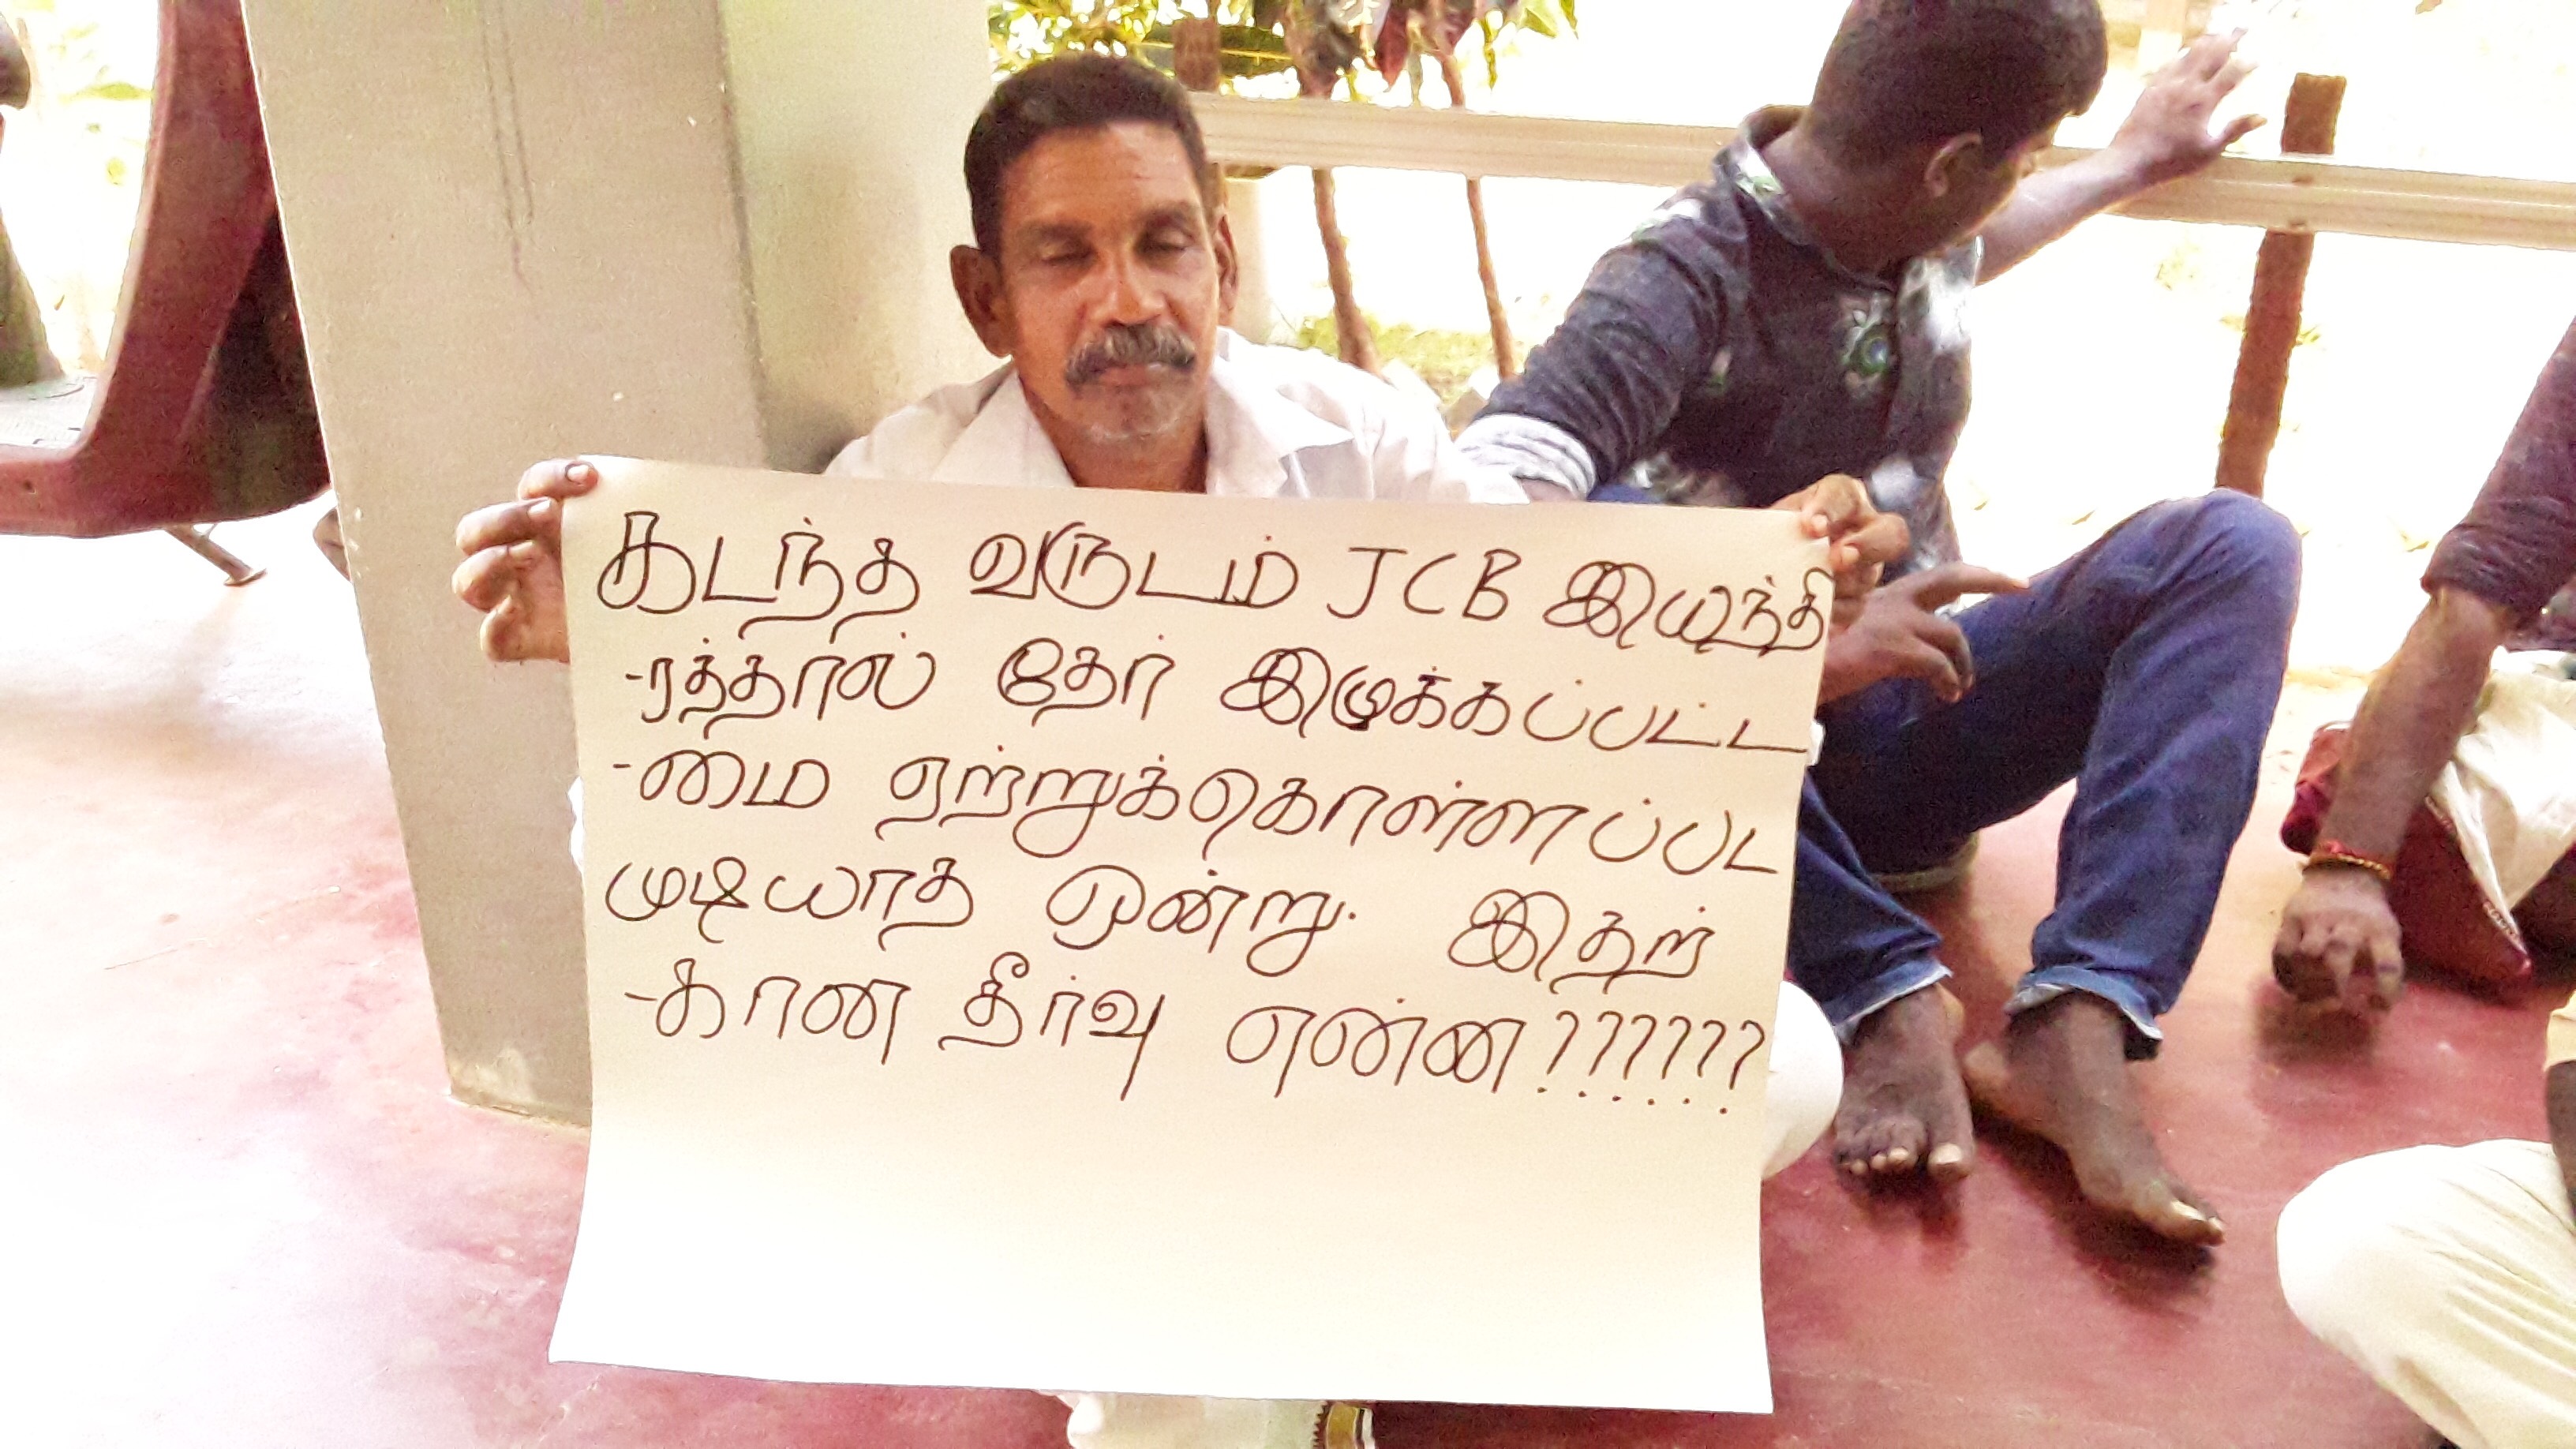 கடந்த வருடம் JCB இயந்தி
-ரத்தால் தேர் இழுக்கப்பட்ட
-மை ஏற்றுக்கொள்ளப்பட
முடியாத ஒன்று. இதற்
-கான தீர்வு என்ன??????